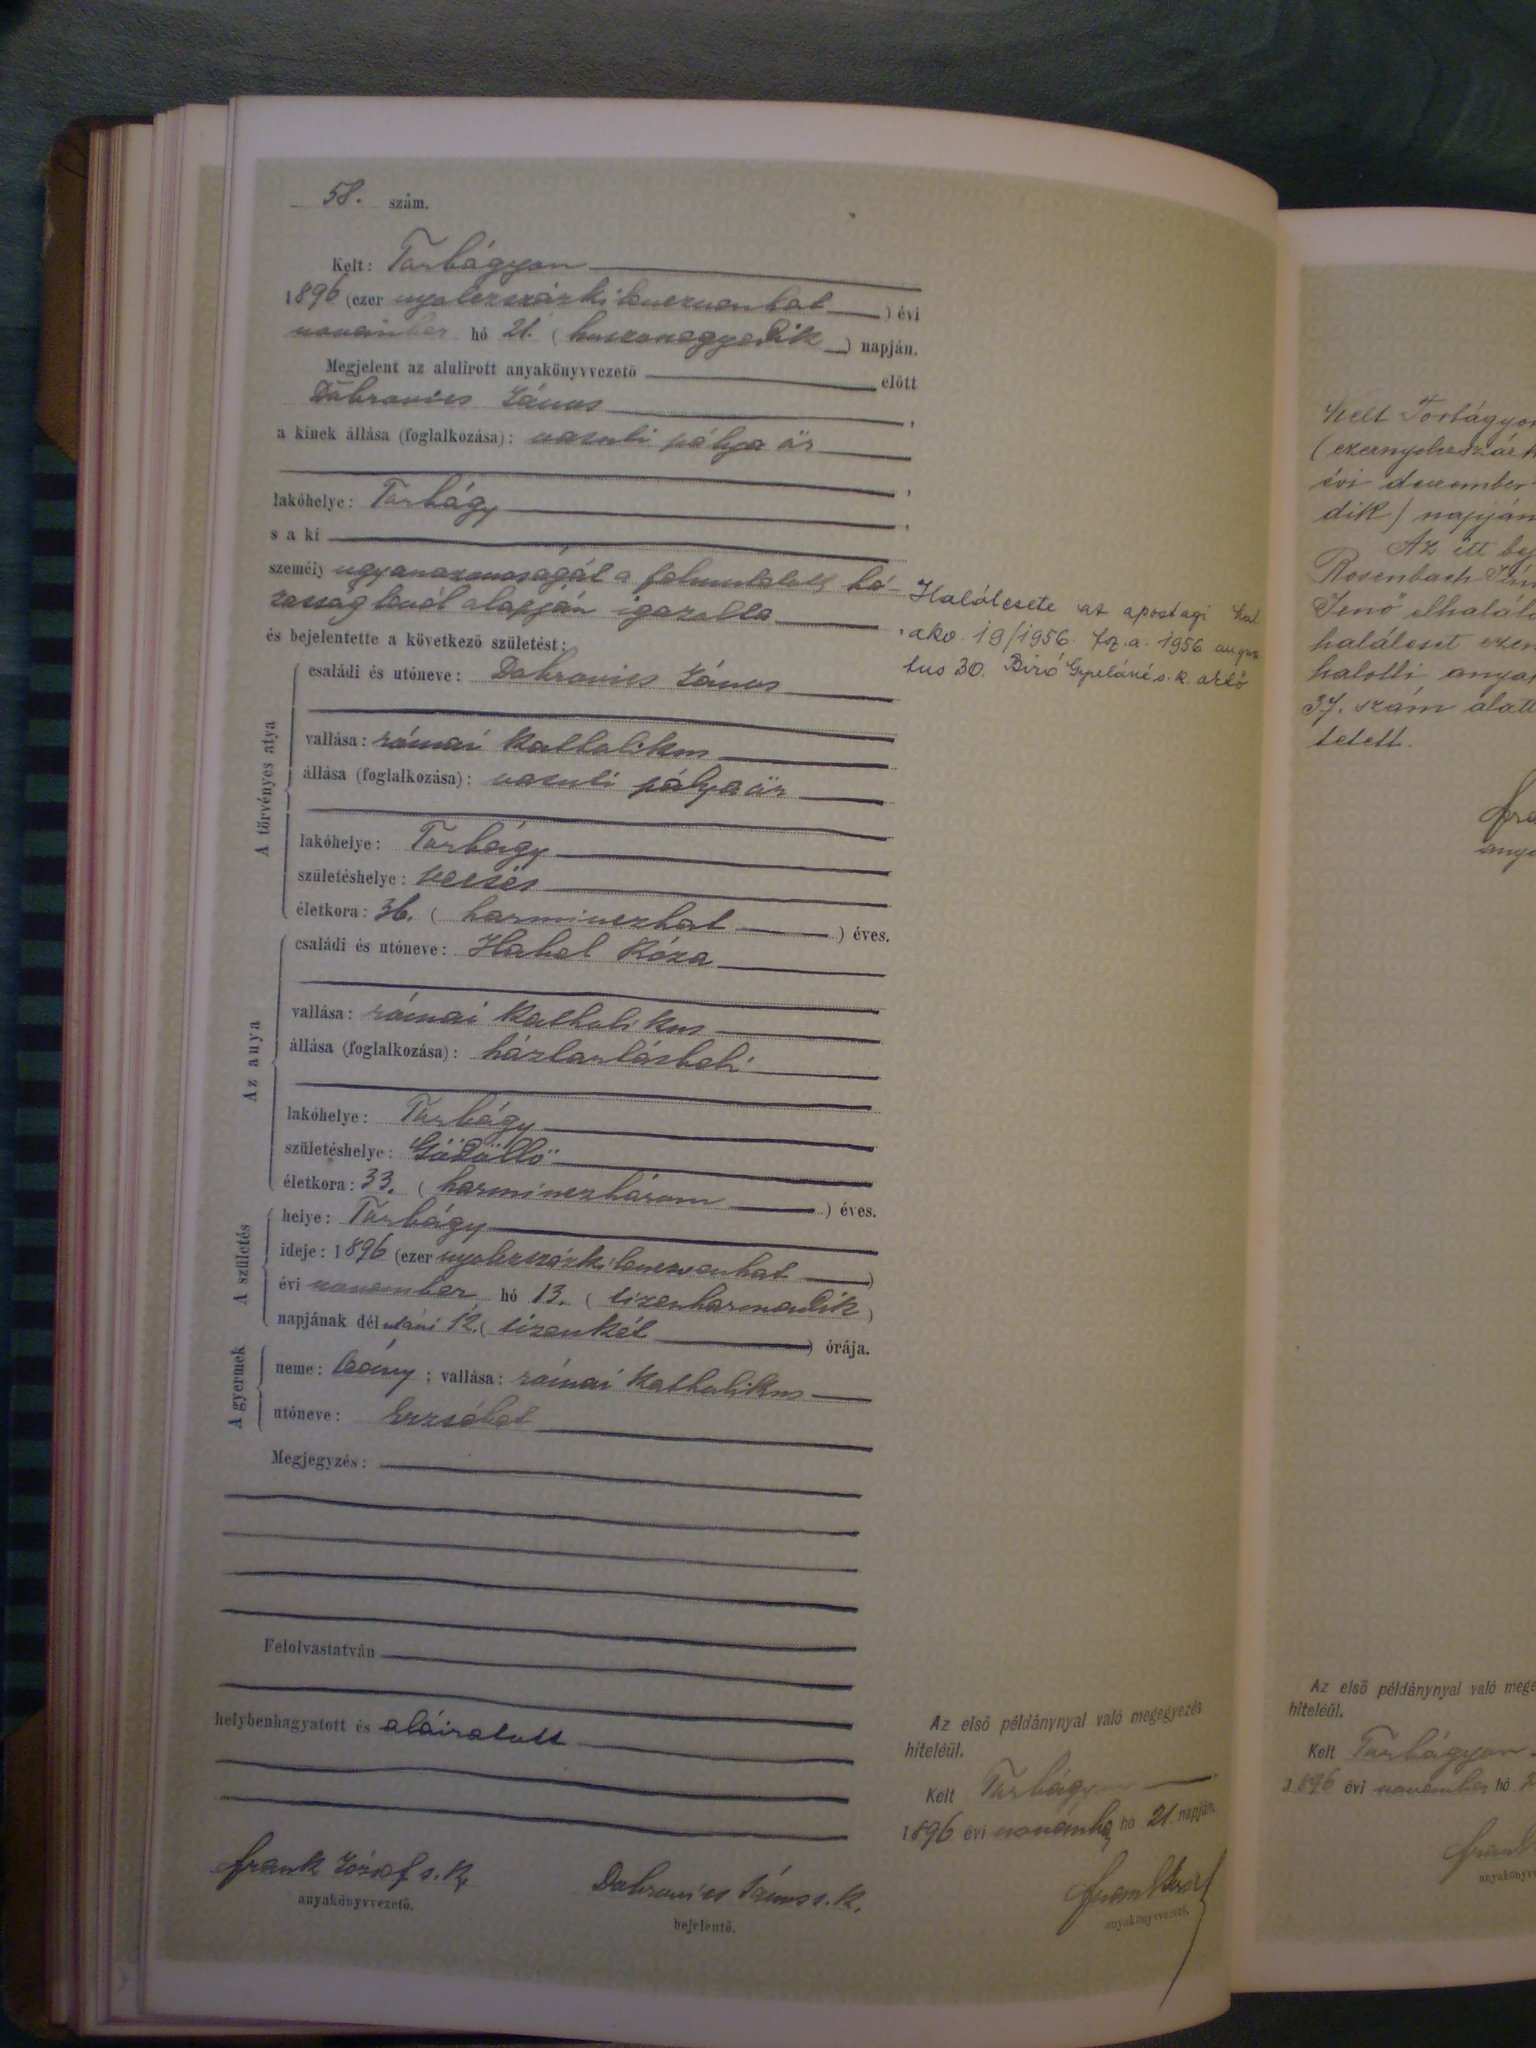 58. szám.
Kelt: Torbágyon
1896 (ezer nyolczszázkilenczvenhat) évi
november hó 21. (huszonegyedik) napján.
Megjelent az alulirott anyakönyvvezető előtt
Dobrovics János,
a kinek állása (foglalkozása): vasuti pálya őr
,
lakóhelye: Torbágy,
s a ki
személy ugyanazonosságát a felmutatott há-
zasság levél alapján igazolta,
és bejelentette a következő születést:
A törvényes atya
családi és utóneve: Dobrovics János
vallása: római katholikus
állása (foglalkozása): vasuti pályaőr
lakóhelye: Torbágy
születéshelye: Vecsés
életkora: 36. (harminczhat) éves.
Az anya
családi és utóneve: Habel Róza
vallása: római katholikus
állása (foglalkozása): háztartásbeli
lakóhelye: Torbágy
születéshelye: Gödöllő
életkora: 33. (harminczhárom) éves.
A születés
helye: Torbágy
ideje: 1896 (ezer nyolczszázkilenczvenhat)
évi november hó 13. (tizenharmadik)
napjának délutáni 12. (tizenkét) órája.
A gyermek
neme: leány; vallása: római katholikus
utóneve: Erzsébet
Megjegyzés:
Felolvastatván
helybenhagyatott és aláiratott
Frank József s. k.
anyakönyvvezető.
Dobrovics János s. k.
bejelentő.
Halálesete az apostagi hal.
akv. 19/1956. 1956 augusz
tus 30. Biró Gyuláné s. k.
Az első példánynyal való megegyezés
hiteléül.
Kelt Torbágyon
1896 évi november hó 21 napján.
Frank József
anyakönyvvezető.
Kelt Torbágyon
(ezernyolczszáz
évi dezember
dik) napján
Az itt bej
Rosenbach
Jenő elhalálo
haláleset ezen
halotti anyak
37. szám alatt
tetett.
Az első példánynyal való mege
hiteléül.
Kelt Torbágyon
1896 évi november hó 2
Frank
anyakönyvv